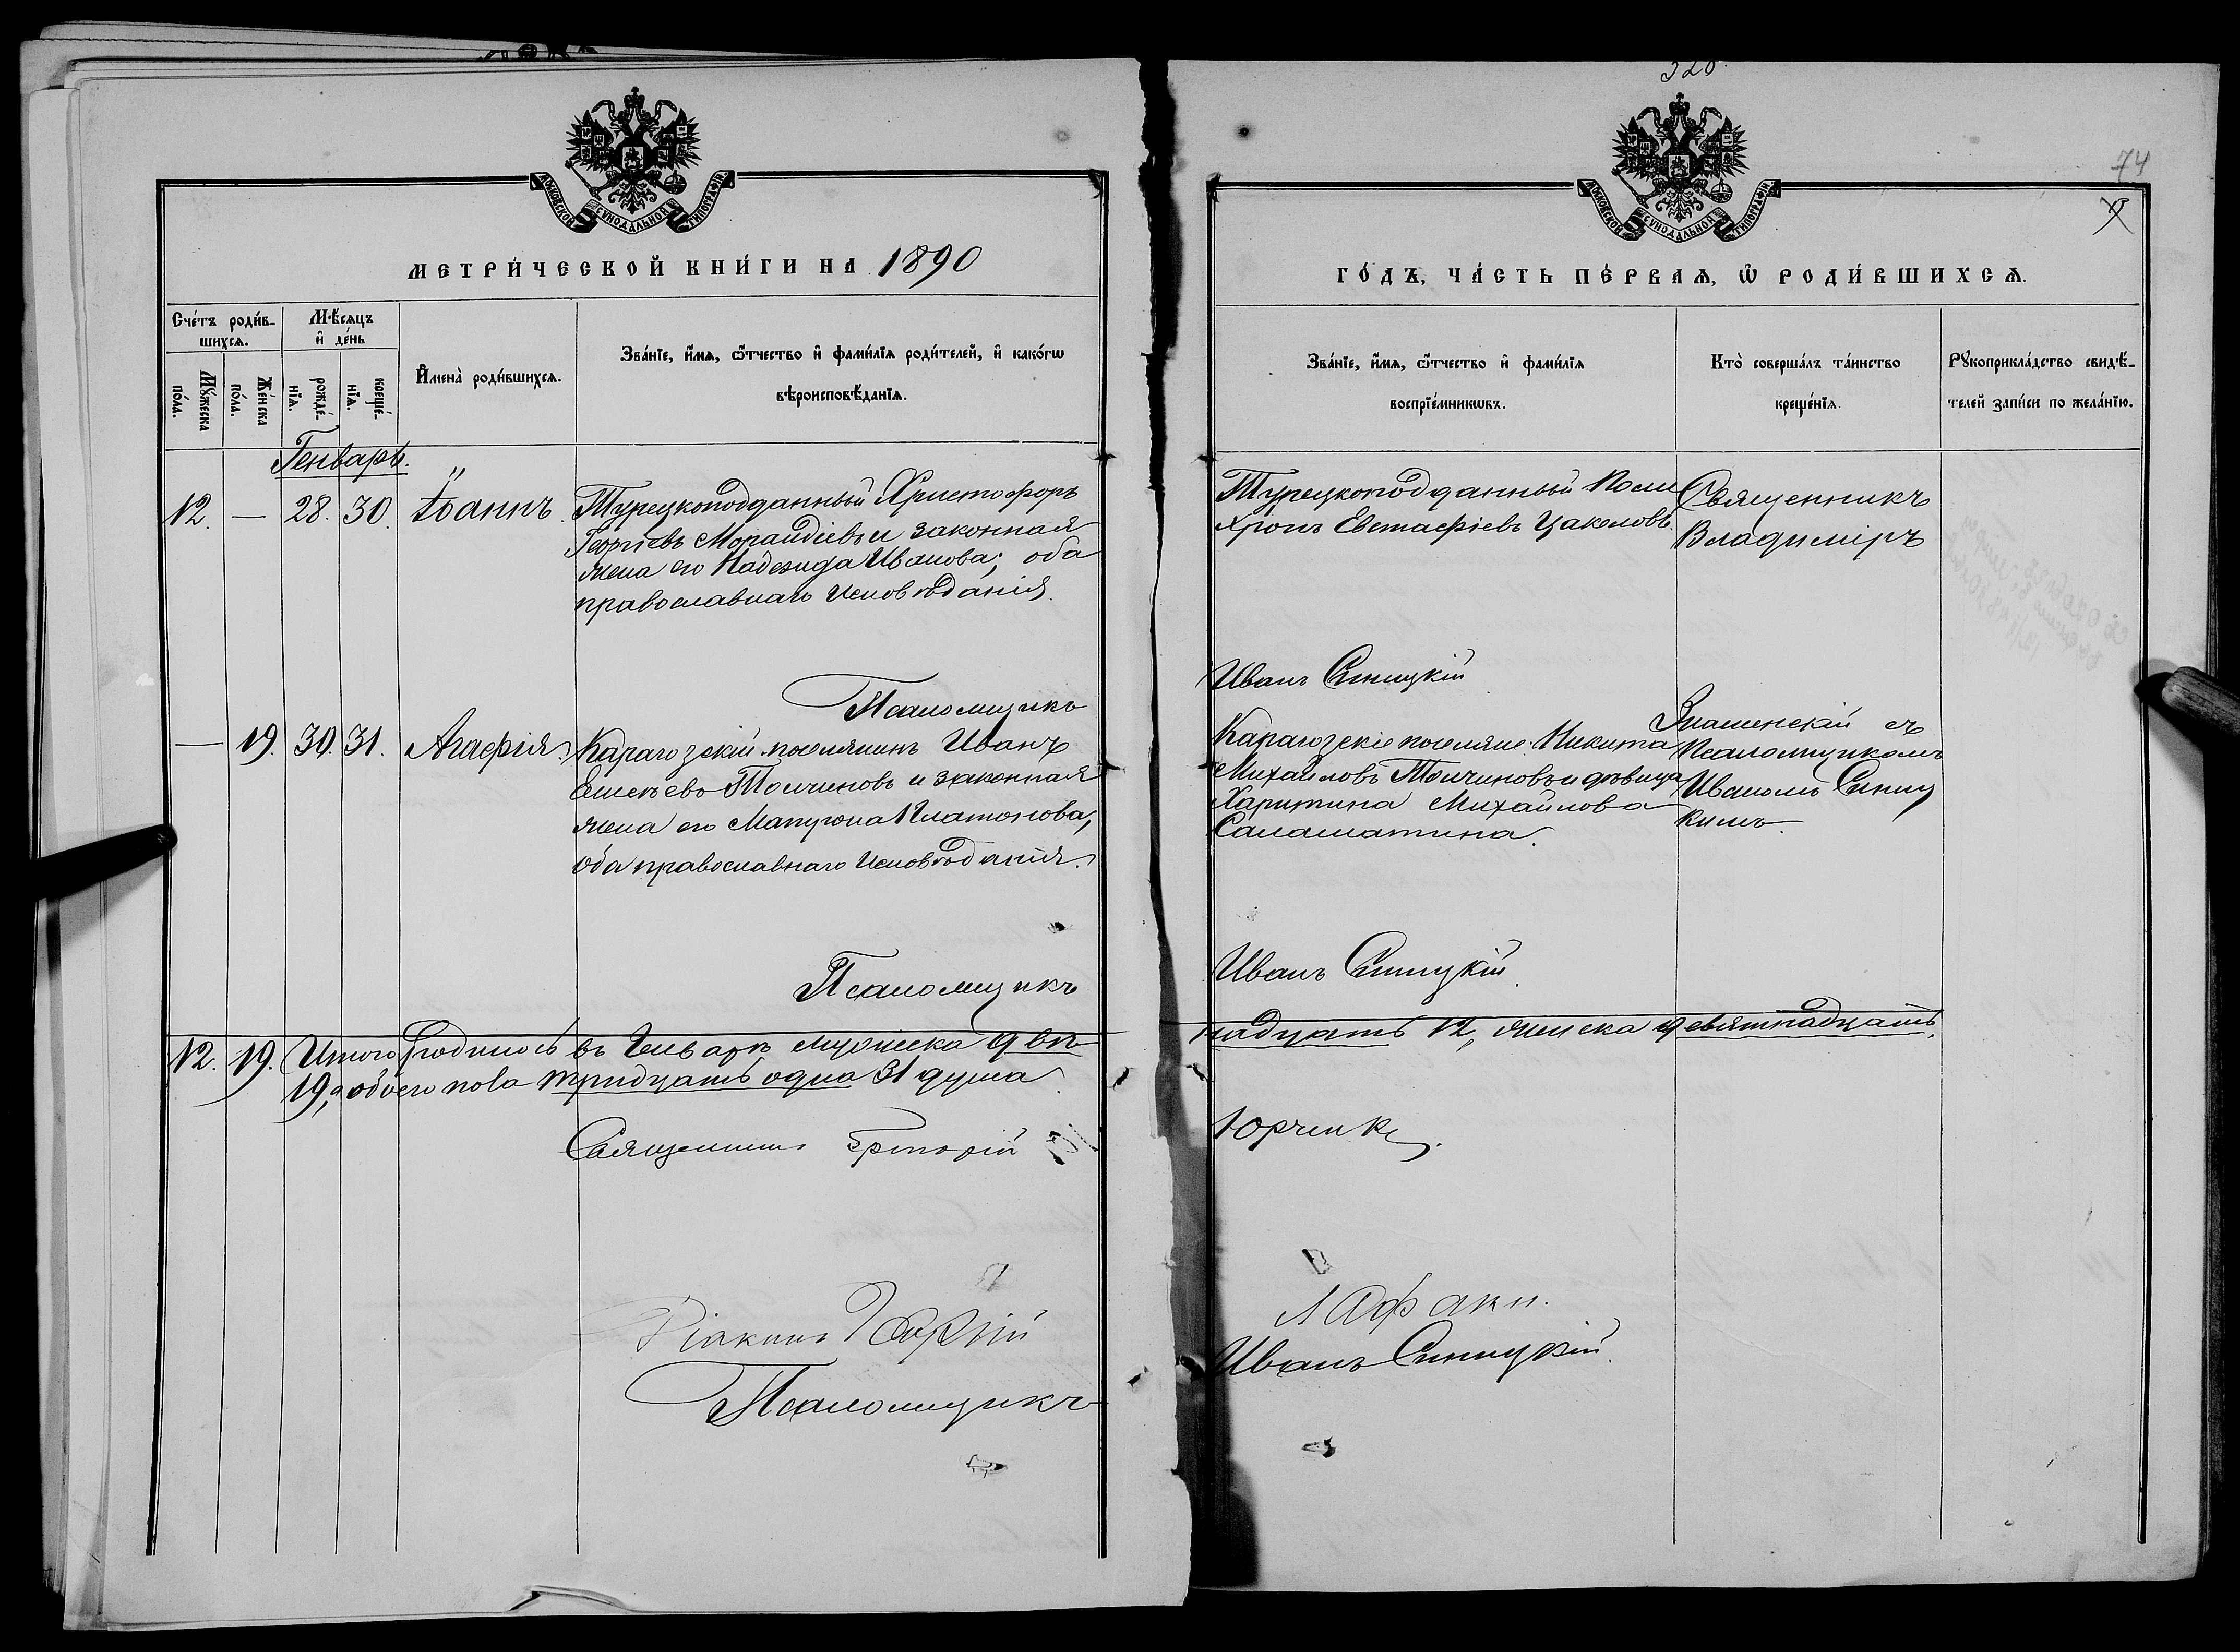 320
74
МОСКОВСКОЙ СѴНОДАЛЬНОЙ ТИПОГРАФІИ
МОСКОВСКОЙ СѴНОДАЛЬНОЙ ТИПОГРАФІИ
МЕТРИ́ЧЕСКОЙ КНИ́ГИ НА 1890
ГО́ДЪ, ЧА́СТЬ ПЕ́РВАѦ, Ѡ҆ РОДИ́ВШИХСѦ.
Сче́тъ роди́в-
шихсѧ.
Мꙋ́жеска
по́ла.
Же́нска
по́ла.
Мѣ́сѧцъ
и҆ де́нь
рожде́-
нїѧ.
креще́-
нїѧ.
И҆мена̀ роди́вшихсѧ.
Зва́нїе, и҆́мѧ, ѻ҆́тчество и҆ фами́лїѧ роди́телей, и҆ како́гѡ
вѣроисповѣ́данїѧ.
Зва́нїе, и҆́мѧ, ѻ҆́тчество и҆ фами́лїѧ
воспрїе́мникѡвъ.
Кто̀ соверша́лъ та́инство
креще́нїѧ.
Рꙋкоприкла́дство свидѣ́-
телей за́писи по жела́нїю.
Генварь.
12. — 28. 30. Іоаннъ.
Турецкоподданный Христофоръ
Георгіевъ и законная
жена его Надежда Иванова; оба
православнаго исповѣданія.
Псаломщикъ
Турецкоподданный Поли
хронъ Евстафіевъ Цакеловъ.
Иванъ Синицкій
Священникъ
Владиміръ
Знаменскій съ
псаломщикомъ
Иваномъ Синиц
кимъ.
— 19. 30. 31. Агафія.
Карагозскій поселянинъ Иванъ
Толчиновъ и законная
жена его Матрона Платонова,
оба православнаго исповѣданія.
Псаломщикъ
Карагозскіе поселяне: Никита
Михайловъ Толчиновъ и дѣвица
Харитина Михайлова
Саламатина.
Иванъ Синицкій.
12. 19. Итого родилось въ Генварѣ мужеска двѣ
надцать 12, женска девятнадцать
19, а обоего пола тридцать одна 31 душа.
Священникъ Григорій
Юрченко.
Діаконъ
Лафаки.
Псаломщикъ
Иванъ Синицкій.